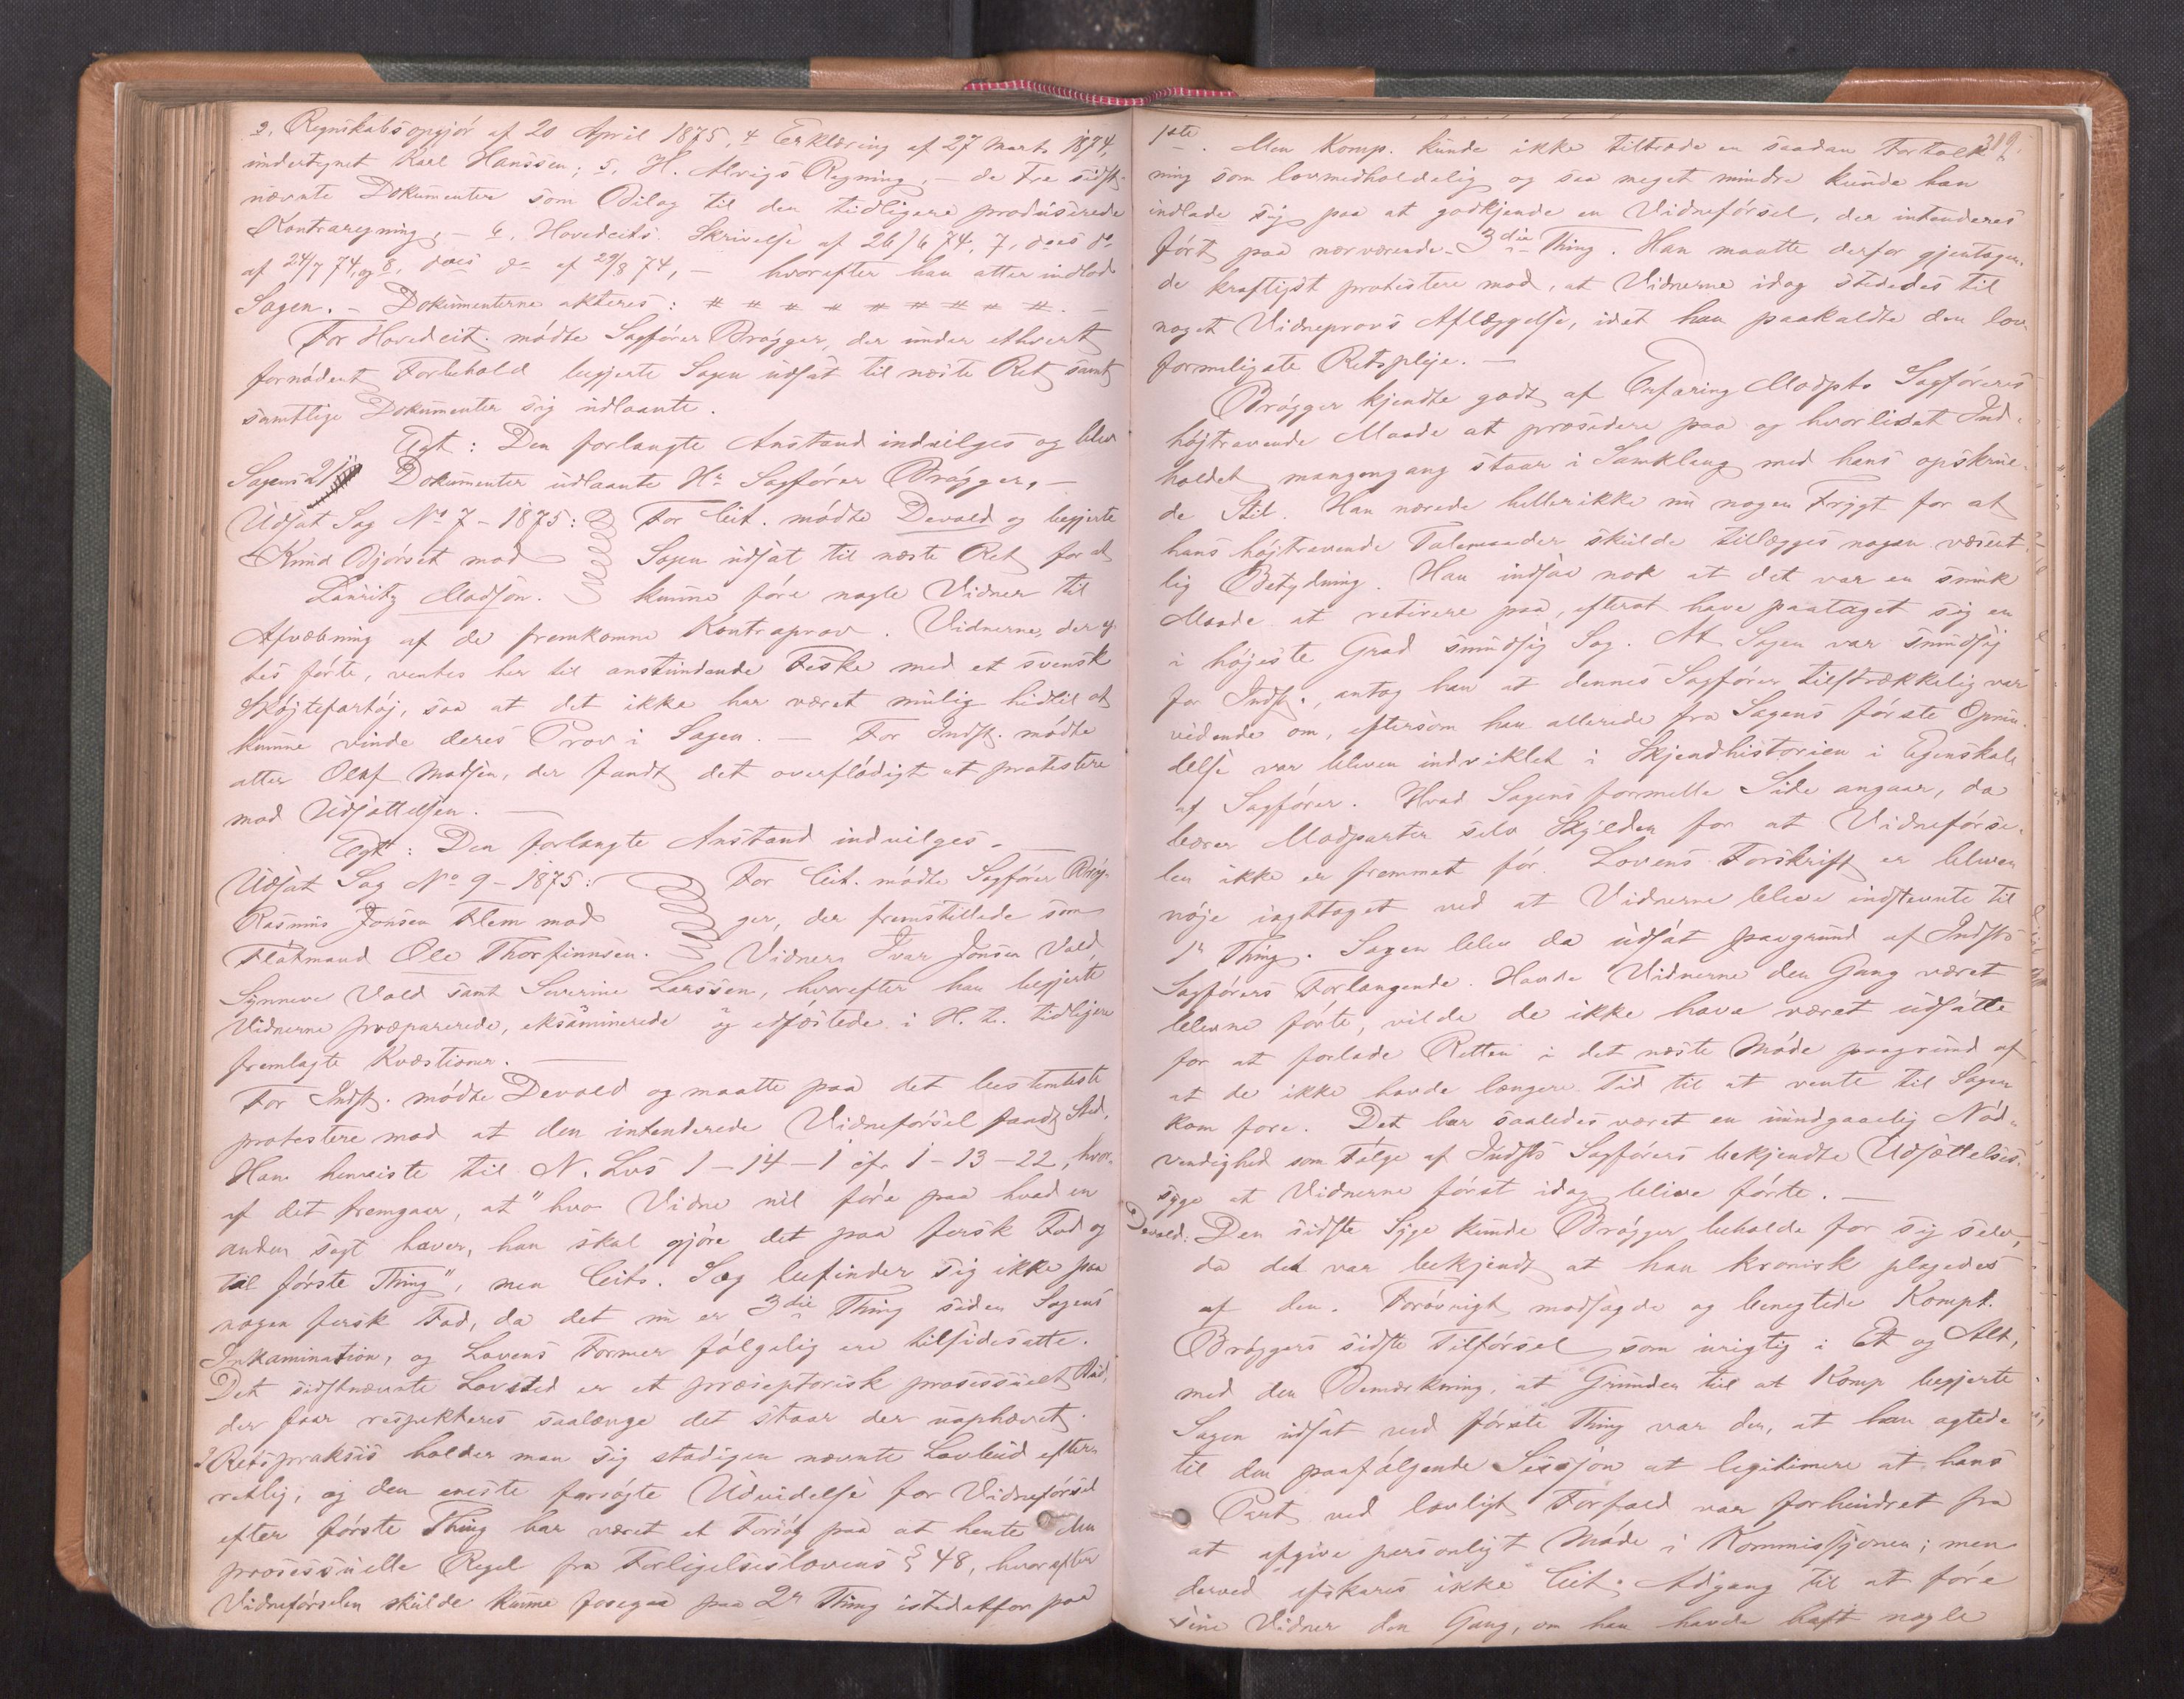 3, Regnskabsopgjör af 20 April 1875, 4 Erklæring af 27 Marts 1874,
undertegnet Karl Hanssen; 5, H. Alvigs Regning, – de tre sidst-
nævnte Dokumenter som Bilag til den tidligere produserede
Kontraregning, – 6, Hovedcits. Skrivelse af 26/6 74, 7, do
af 24/7 74, og 8, do af 29/8 74, – hvorefter han atter indlod
Sagen. – Dokumenterne akteres: # # # # # # # # #. –
For Hovedcit. mödte Sagförer Brögger, der under ethvert
fornödent Forbehold begjerte Sagen udsat til næste Ret samt
samtlige Dokumenter sig udlaante.
Egt: Den forlangte Anstand indvilges og blev
Sagens Dokumenter udlaante Hr Sagförer Brögger, –
Udsat Sag No 7 – 1875: For Cit. mödte Devold og begjerte
Knud Björset mod Sagen udsat til næste Ret for at
Lauritz Madsön. kunne före nogle Vidner til
Afvæbning af de fremkomne Kontraprov. Vidnerne, der ag-
tes förte, ventes her til anstundende Fiske med et svensk
Sköjtefartöj, saa at det ikke har været mulig hidtil at
kunne vinde deres Prov i Sagen. – For Indst. mödte
atter Olaf Madsen, der fandt det overflödigt at protestere
mod Udsættelsen. –
Egt: Den forlangte Anstand indvilges. –
Udsat Sag No 9 – 1875: For Cit. mödte Sagförer Brög-
Rasmus Jonsen Flem mod ger, der fremstillede som
Flötmand Ole Thorfinnsen. Vidner Ivar Jonsen Vold,
Synneve Vold samt Severine Larssen, hvorefter han begjerte
Vidnerne præparerede, eksaminerede og edfæstede i H. t. tidligere
fremlagte Kvæstioner. –
For Indst. mödte Devold og maatte paa det bestemteste
protestere mod at den intenderede Vidneförsel fandt Sted.
Han henviste til N. Lvs 1–14–1 cfr 1–13–22, hvor-
af det fremgaar, at "hvo Vidne vil före paa hvad en
anden sagt haver, han skal gjöre det paa fersk Fod og
til förste Thing", men Cits. Sag befinder sig ikke paa
nogen fersk Fod, da det nu er 3die Thing siden Sagens
Inkamination, og Lovens Former fölgelig ere tilsidesatte.
Det sidstnævnte Lovsted er et præseptorisk prosessuelt Bud,
der faar respekteres saalænge det staar der uophævet.
I Retspraksis holder man sig stadigen nævnte Lovbud efter-
rettlig, og den eneste forsögte Udvidelse for Vidneförsel
efter förste Thing har været et Forsög paa at hente den
prosessuelle Regel fra Forligelseslovens § 48, hvorefter
Vidneförselen skulde kunne foregaa paa 2et Thing istedetfor paa
319.
1ste. Men Komp. kunde ikke tiltræde en saadan Fortolk-
ning som lovmedholdelig og saa meget mindre kunde han
indlade sig paa at godkjende en Vidneförsel, der intenderes
fört paa nærværende 3die Thing. Han maatte derfor gjentagen-
de kraftigst protestere mod, at Vidnerne idag stededes til
noget Vidneprovs Aflæggelse, idet han paakaldte den lov
formeligste Retspleje. –
Brögger kjendte godt af Erfaring Modpts Sagförers
höjtravende Maade at prosedere paa og hvorlidet Ind-
holdet mangengang staar i Samklang med hans opskrue-
de Stil. Han nærede hellerikke nu nogen Frygt for at
hans höjtravende Talemaader skulde tillægges nogen væsent-
lig Betydning. Han indsaa nok at det var en smuk
Maade at retirere paa, efterat have paataget sig en
i höjeste Grad smudsig Sag. At Sagen var smudsig
for Indst., antog han at dennes Sagförer tilstrækkelig var
vidende om, eftersom han allerede fra Sagens förste Oprin-
delse var bleven indviklet i Skjendhistorien i Egenskab
af Sagförer. Hvad Sagens formelle Side angaar, da
bærer Modparten selv Skylden for at Vidneförse-
len ikke er fremmet för. Lovens Forskrift er bleven
nöje iagttaget ved at Vidnerne bleve indstevnte til
1e Thing. Sagen blev da udsat paagrund af Indsts
Sagförers Forlangende. Havde Vidnerne den Gang været
blevne förte, vilde de ikke have været udsatte
for at forlade Retten i det næste Möde paagrund af
at de ikke havde længere Tid til at vente til Sagen
kom fore. Det har saaledes været en uundgaaelig Nöd-
vendighed som Fölge af Indsts Sagförers bekjendte Udsættelses-
syge at Vidnerne först idag bleve förte. –
Devold: Den sidste Syge kunde Brögger beholde for sig selv,
da det var bekjendt at han kronisk plagedes
af den. Forövrigt modsagde og benegtede Kompt.
Bröggers sidste Tilförsel som urigtig i Et og Alt,
med den Bemærkning, at Grunden til at Komp begjerte
Sagen udsat ved förste Thing var den, at han agtede
til den paafölgende Sessjon at legitimere at hans
Part ved lovligt Forfald var forhindret fra
at afgive personligt Möde i Kommissjonen; men
derved afskares ikke Cit. Adgang til at före
sine Vidner den Gang, om han havde haft nogle